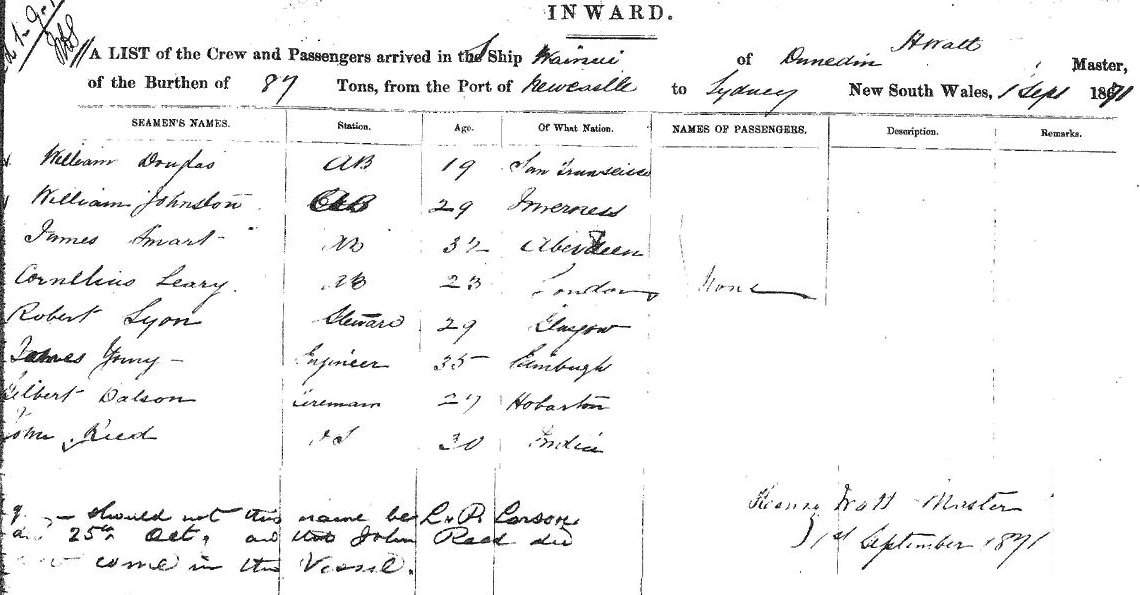 INWARD.
A LIST of the Crew and Passengers arrived in the Ship Wainui of Dunedin H Watt Master,
of the Burthen of 87 Tons, from the Port of Newcastle to Sydney New South Wales, 1 Sept 1871
SEAMEN'S NAMES. Station. Age. Of What Nation. NAMES OF PASSENGERS. Description. Remarks.
William Douglas AB 19 San Francisco
William Johnston AB 29 Inverness
James Smart AB 32 Aberdeen
Cornelius Leary. AB 23 London None
Robert Lyon Steward 29 Glasgow
James Young Engineer 35 Edinburgh
Gilbert Dalson Fireman 27 Hobarton
John Reed 30 India
Henry Watt Master
should not this name be Larson
25th Oct, and John Reed did
1st September 1871
come in this Vessel.